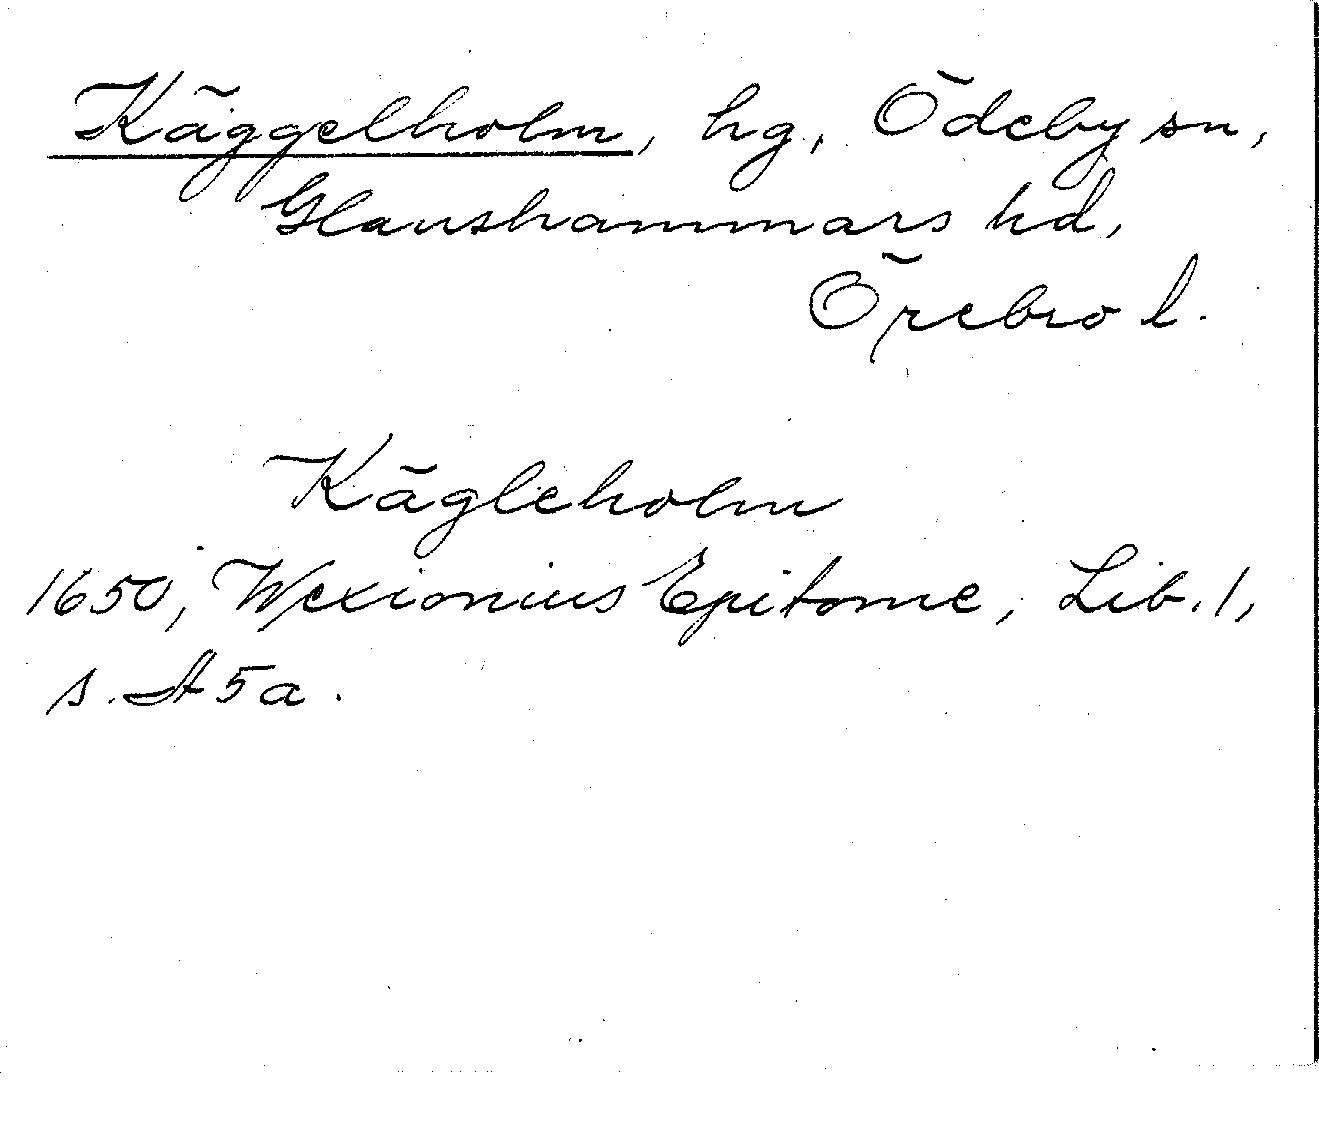 Käggelholm, hg, Ödeby sn,
Glanshammars hd,
Örebro l.
Kägleholm
1650, Wexionius Epitome, Lib. 1,
s. A 5a.